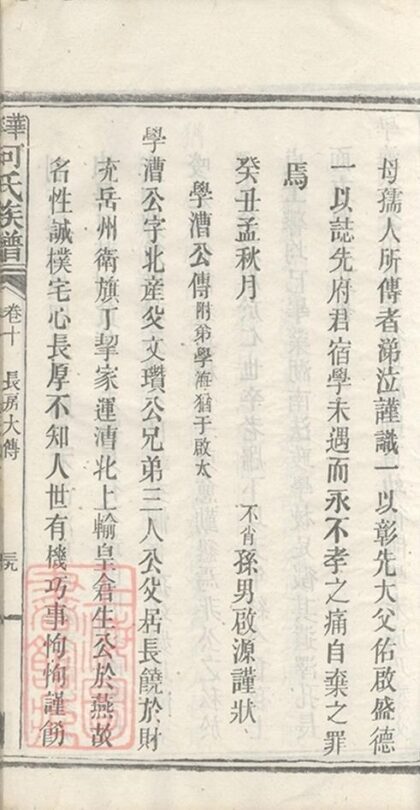 母孺人所傳者涕泣謹識一以彰先大父佑啟盛德
一以誌先府君宿學未遇而永不孝之痛自棄之罪
焉
癸丑孟秋月 不肖孫男啟源謹狀
學漕公傳附弟學海猶子啟太
學漕公字北産父文瓚公兄弟三人公父居長饒於財
充岳州衛旗丁挈家運漕北上輸皇倉生公於燕故
名性誠樸宅心長厚不知人世有機巧事恂恂謹飭
華 何氏族譜 卷十 長房大傳